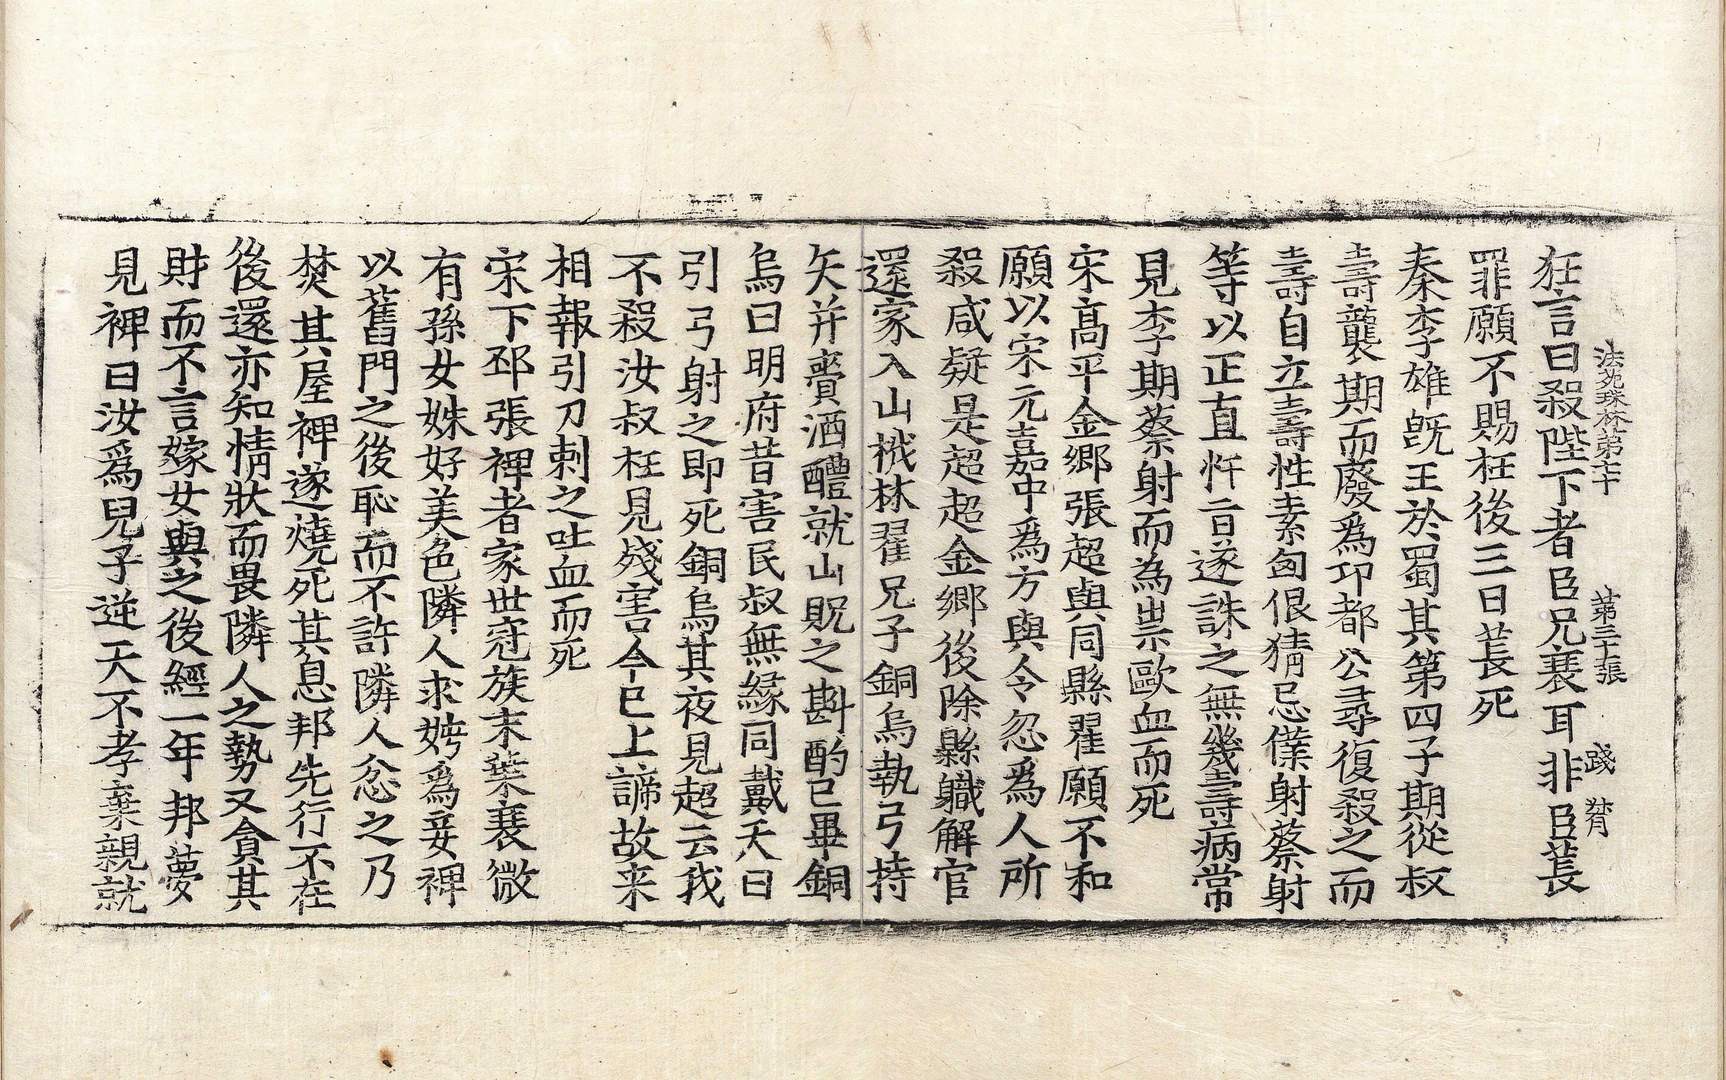 狂言曰殺陛下者臣兄萇耳非臣萇
罪願不賜枉後三日萇死
秦李雄旣王於蜀其第四子期從叔
壽襲期而廢爲卭都公尋復殺之而
壽自立壽性素匈佷猜忌僕射蔡射
等以正直忤旨遂誅之無幾壽病常
見李期蔡射而為祟歐血而死
宋髙平金鄉張超與同縣翟願不和
願以宋元嘉中爲方與令忽爲人所
殺咸疑是超超金鄉後除縣職解官
還家入山栰林翟兄子銅烏執弓持
矢幷賷酒醴就山貺之斟酌已畢銅
烏曰明府昔害民叔無緣同戴天日
引弓射之即死銅烏其夜見超云我
不殺汝叔枉見殘害今已上諦故来
相報引刀刺之吐血而死
宋下邳張稗者家世冠族末葉衰微
有孫女姝好美色隣人求娉爲妾稗
以舊門之後恥而不許隣人忿之乃
焚其屋稗遂燒死其息邦先行不在
後還亦知情狀而畏隣人之勢又貪其
財而不言嫁女與之後經一年邦夢
見稗曰汝爲兒子逆天不孝棄親就
法苑珠林第七十 第三十張 踐